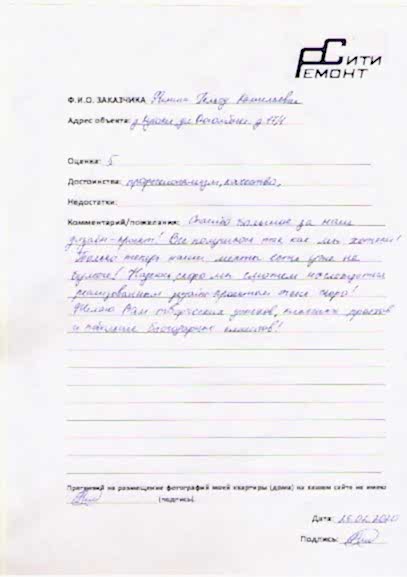 СИТИ
РЕМОНТ
Ф.И.О. ЗАКАЗЧИКА
Адрес объекта: д.
Оценка: 5
Достоинства: профессионализм, качество,
Недостатки:
Комментарий/пожелания: Спасибо большое за наш
дизайн-проект! Все получилось так как мы хотели!
Только теперь наши мечты стали уже не
Надеюсь, скоро мы сможем насладиться
реализованным дизайн проектом
Желаю Вам творческих успехов, проектов
и побольше благодарных клиентов!
Претензий на размещение фотографий моей квартиры (дома) на вашем сайте не имею
(подпись).
Дата: 25.02.2020
Подпись: